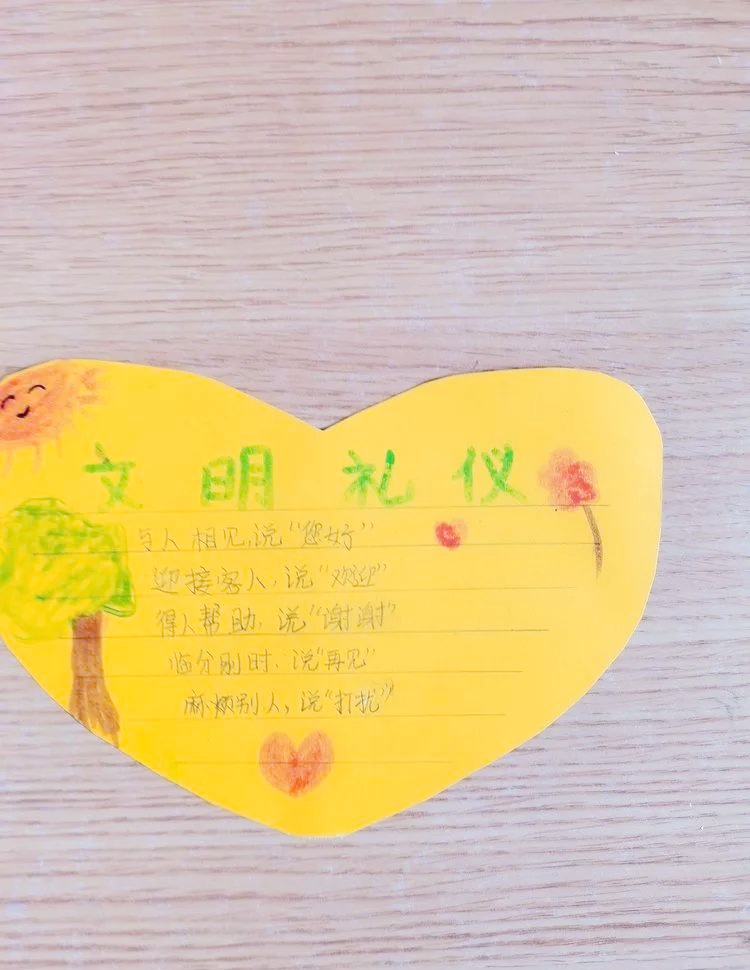 文明礼仪
与人相见,说“您好”
迎接客人,说“欢迎”
得人帮助,说“谢谢”
临分别时,说“再见”
麻烦别人,说“打扰”